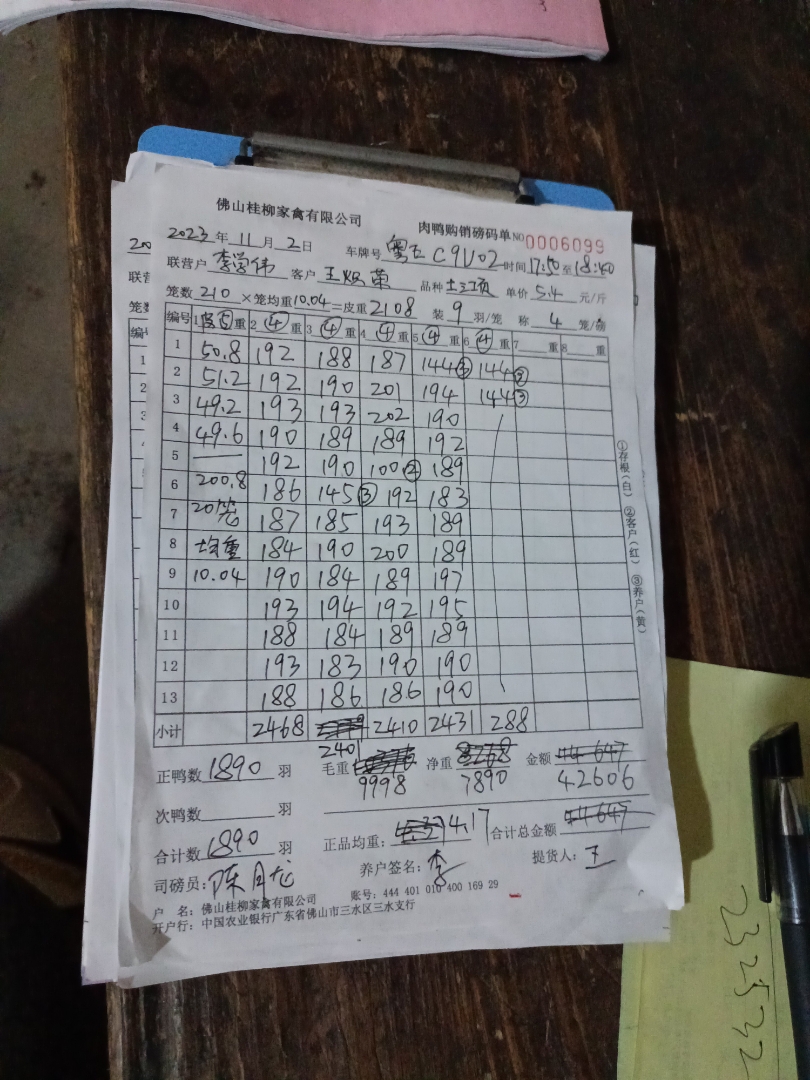 佛山桂柳家禽有限公司 肉鸭购销磅码单 NO 0006099
2023 年 11 月 2 日 车牌号 粤E C9U02 时间 17:50 至 18:40
联营户 李学伟 客户 王焕荣 品种 土三项 单价 5.4 元/斤
笼数 210 ×笼均重 10.04 =皮重 2108 装 9 羽/笼 称 4 笼/磅
编号 1 皮⑤ 重 2 ④ 重 3 ④ 重 4 ④ 重 5 ④ 重 6 ④ 重 7 重 8 重
1 50.8 192 188 187 144③ 144③
2 51.2 192 190 201 194 144③
3 49.2 193 193 202 190
4 49.6 190 189 189 192
5 — 192 190 100② 189
6 200.8 186 145③ 192 183
7 20笼 187 185 193 189
8 均重 184 190 200 189
9 10.04 190 184 189 197
10 193 194 192 195
11 188 184 189 189
12 193 183 190 190
13 188 186 186 190
小计 2468 2410 2431 288
2401
正鸭数 1890 羽 毛重 9998 净重 8268 7890 金额 44647 42606
次鸭数 羽
合计数 1890 羽 正品均重: 4.17 合计总金额 44647
司磅员: 陈月龙 养户签名: 李 提货人: 王
户 名: 佛山桂柳家禽有限公司 账号: 444 401 010 400 169 29
开户行: 中国农业银行广东省佛山市三水区三水支行
①存根(白) ②客户(红) ③养户(黄)
200
联营
笼数
编号
1
2
3
4
5
6
7
8
9
232532